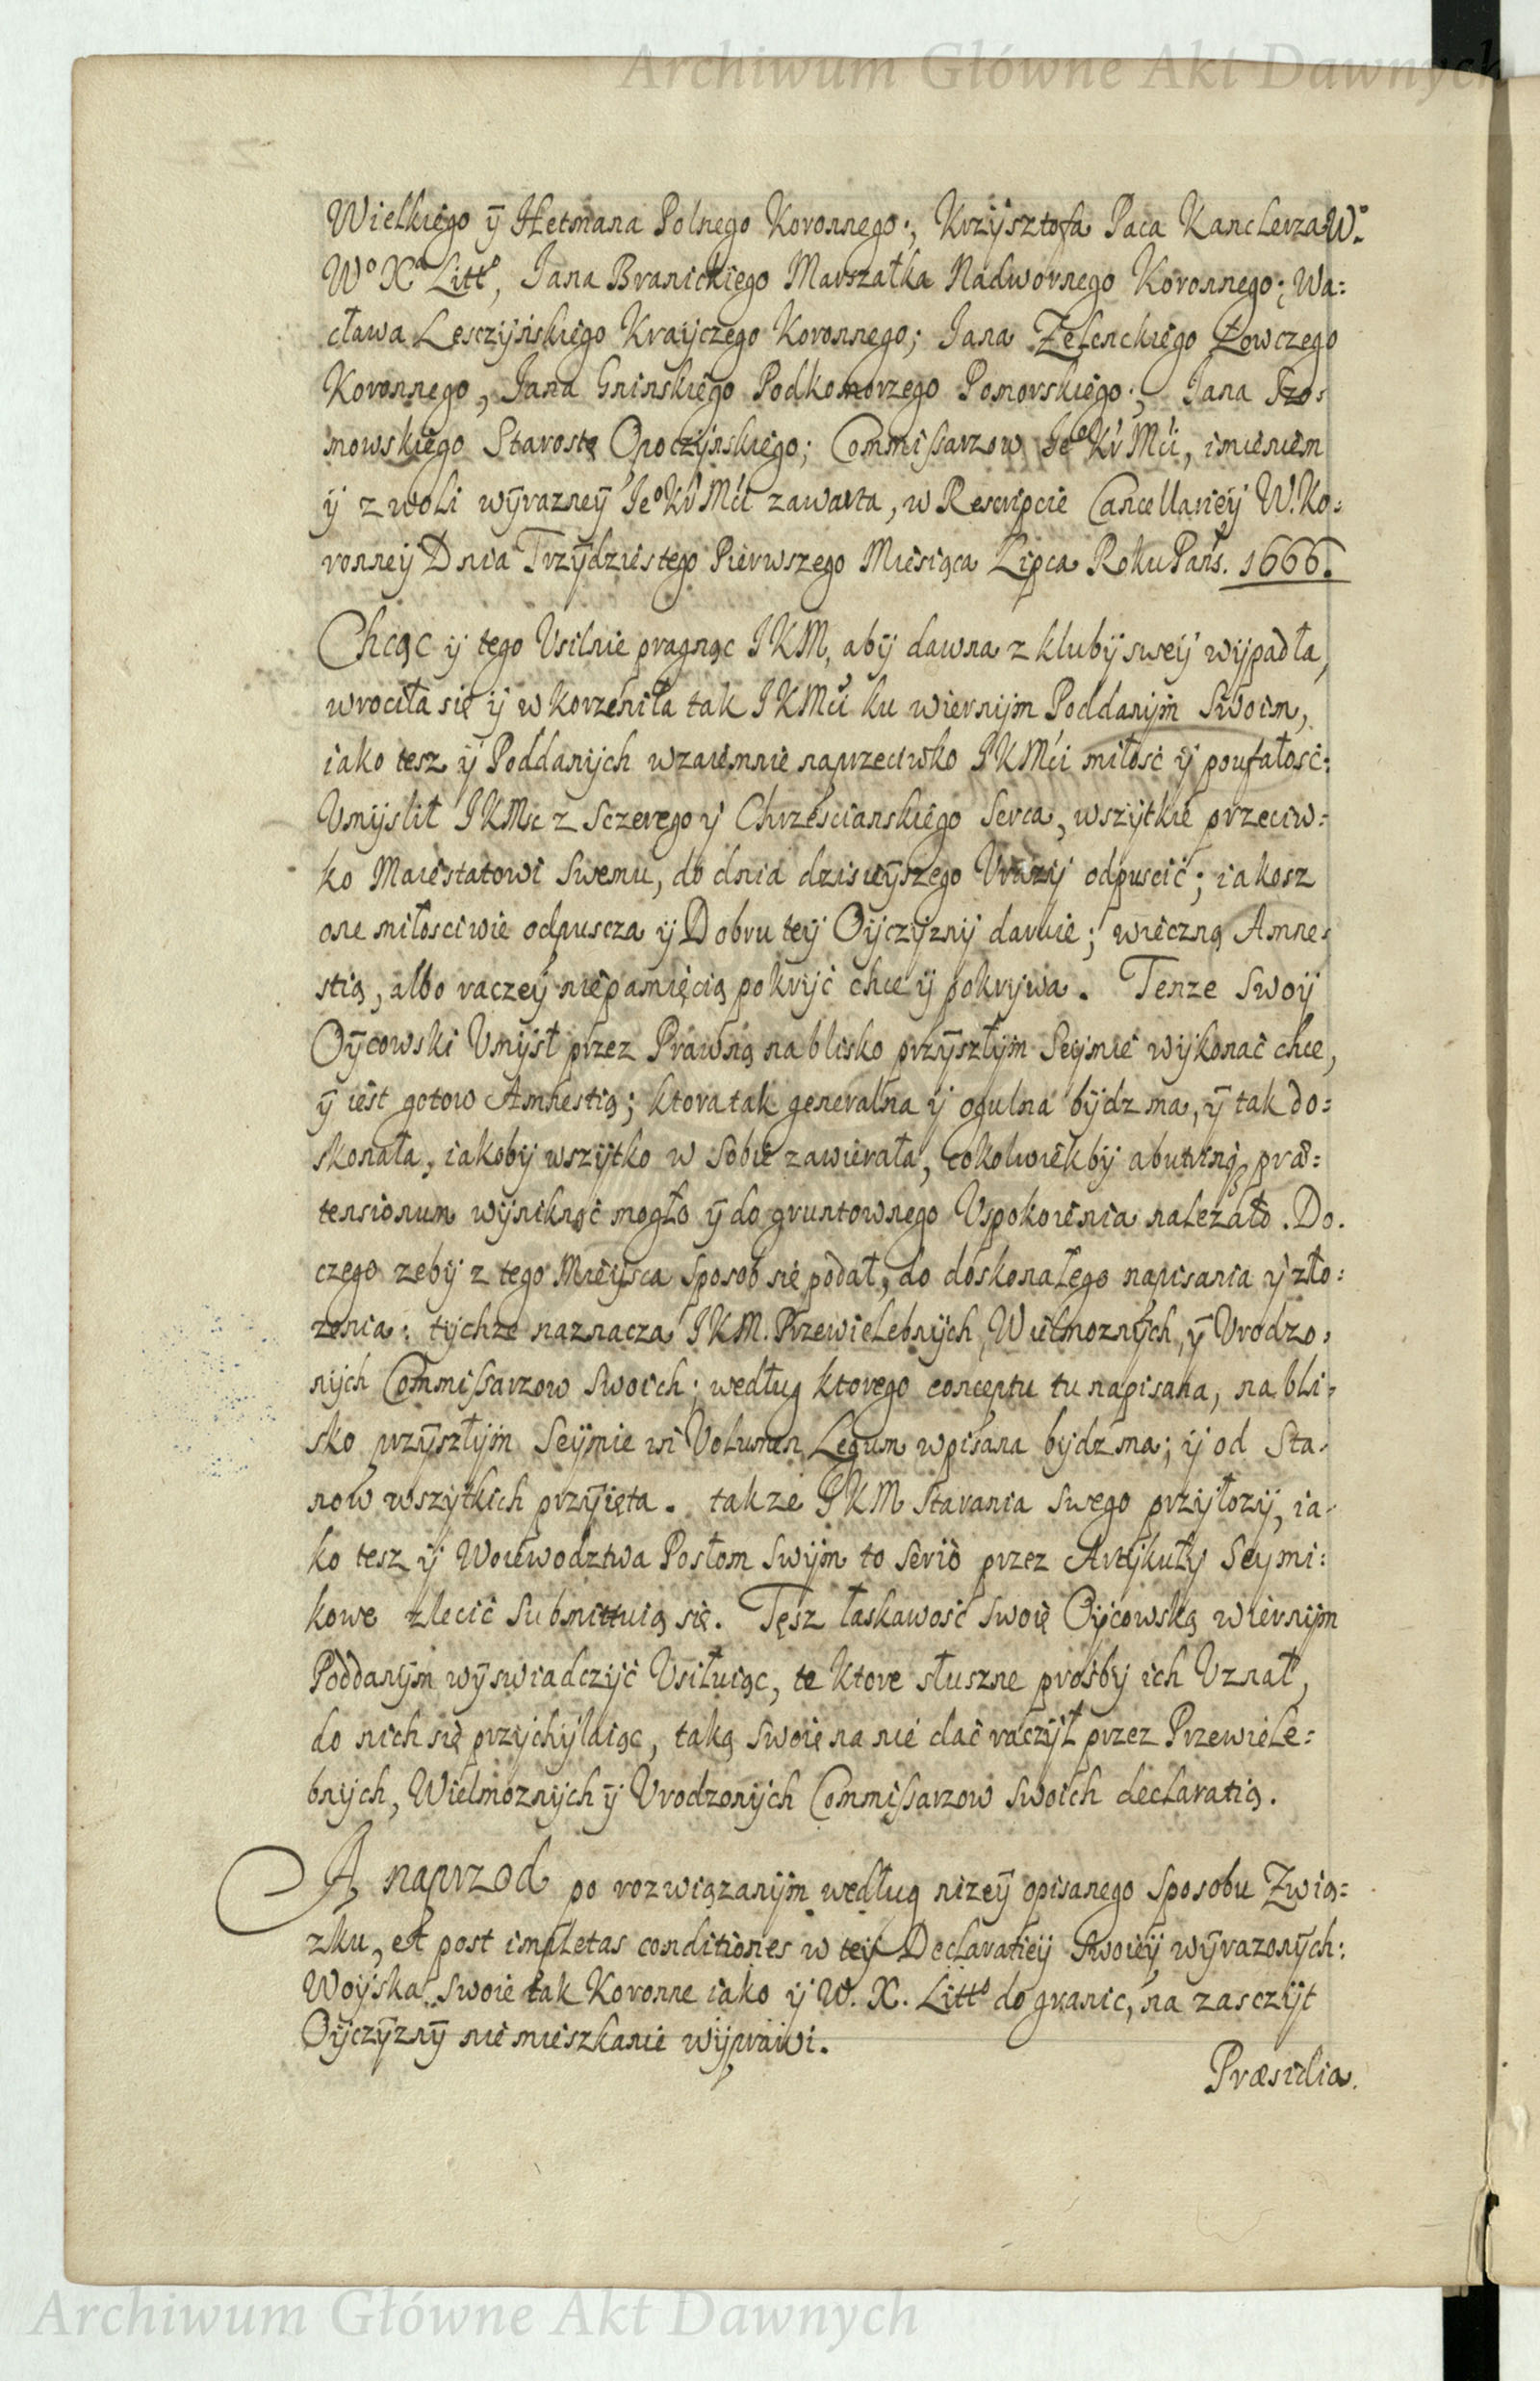 Archiwum Główne Akt Dawnych
Wielkiego ÿ Hetmana Polnego Koronnego; Krzÿsztofa Paca Kanclerza W°.
W° X° Litt°, Jana Branickiego Marszałka Nadwornego Koronnego; Wa:
cława Lesczÿńskiego Kraÿczego Koronnego; Jana Zelenckiego Łowczego
Koronnego, Jana Gninskiego Podkomorzego Pomorskiego; Jana Szo:
mowskiego Starostę Opoczÿnskiego; Commissarzow Je° Kr Mći, imieniem
ÿ z woli wÿrazneÿ Je° Kr Mći zawarta, w Rescripcie Cancellarieÿ W. Ko:
ronneÿ Dnia Trzÿdziestego Pierwszego Miesiąca Lipca Roku Pańs. 1666.
Chcąc ÿ tego Vsilnie pragnąc J K M, abÿ dawna z klubÿ sweÿ wÿpadła,
wrociła się ÿ wkorzeniła tak J K Mći ku wiernÿm Poddanÿm Swoim,
iako tesz ÿ Poddanÿch wzaiemnie naprzeciwko J K Mći miłosć ÿ poufałosć:
Vmÿslił J K Mć z Sczerego ÿ Chrzesciańskiego Serca, wszÿtkie przeciw:
ko Maiestatowi Swemu, do dnia dzisieÿszego Vrazÿ odpuscić; iakosz
one miłosciwie odpuscza ÿ Dobru teÿ Oÿczÿznÿ daruie; wieczną Amne:
stią, albo raczeÿ niepamięcią pokrÿć chce ÿ pokrÿwa. Tenze Swoÿ
Oÿcowski Vmÿsł przez Prawną na blisko przÿszłÿm Seÿmie wÿkonać chce,
ÿ iest gotow Amnestią; ktora tak generalna ÿ ogulna bÿdz ma, ÿ tak do:
skonała, iakobÿ wszÿtko w Sobie zawierała, cokolwiekbÿ abutrinq præ:
tensionum wÿniknąć mogło ÿ do gruntownego Vspokoienia nalezało. Do.
czego zebÿ z tego Mieÿsca Sposob się podał, do doskonałego napisania ÿ zło:
zenia: tÿchze naznacza J K M. Przewielebnÿch, Wielmoznÿch, ÿ Vrodzo:
nÿch Commissarzow Swoich; według ktorego conceptu tu napisana, na bli:
sko przÿszłÿm Seÿmie in Volumen Legum wpisana bÿdz ma; ÿ od Sta:
now wszÿtkich przÿięta. takze J K M Starania Swego przÿłozÿ, ia:
ko tesz ÿ Woiewodztwa Posłom Swÿm to Serio przez Artÿkułÿ Seÿmi:
kowe zlecić Submittuią się. Tęsz łaskawość Swoię Oÿcowską wiernÿm
Poddanÿm wÿswiadczÿć Vsiłuiąc, te ktore słuszne prosbÿ ich Vznał,
do nich się przÿchÿlaiąc, taką Swoię na nie dać raczÿł przez Przewiele:
bnÿch, Wielmoznÿch ÿ Vrodzonÿch Commissarzow Swoich declaratią.
A naprzod po rozwiązanÿm według nizeÿ opisanego Sposobu Zwią:
zku, et post impletas conditiones w teÿ Declaratieÿ Swoieÿ wÿrazonÿch:
Woÿska Swoie tak Koronne iako ÿ W. X. Litt° do granic, na zasczÿt
Oÿczÿznÿ nie mieszkanie wÿprawi.
Præsidia.
Archiwum Główne Akt Dawnych